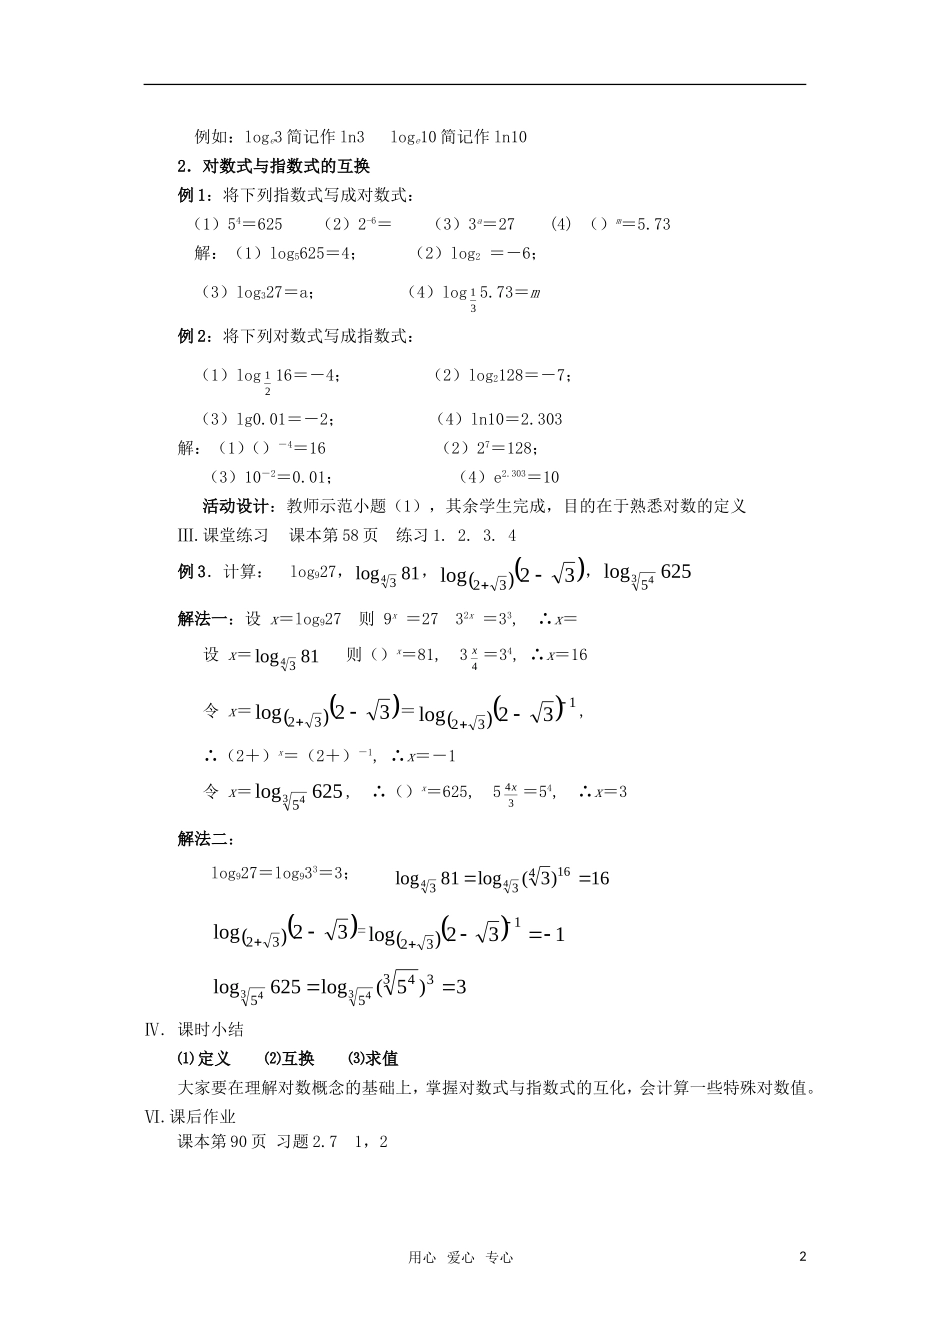 例如：logₑ3 简记作 ln3 logₑ10 简记作 ln10
2．对数式与指数式的互换
例 1：将下列指数式写成对数式：
（1）5⁴＝625 （2）2⁻⁶＝ （3）3ᵃ＝27 (4) （）ᵐ＝5.73
解：（1）log₅625＝4； （2）log₂ ＝－6；
（3）log₃27＝a； （4）log_{1/3} 5.73＝m
例 2：将下列对数式写成指数式：
（1）log_{1/2} 16＝－4； （2）log₂128＝－7；
（3）lg0.01＝－2； （4）ln10＝2.303
解：（1）（）⁻⁴＝16 （2）2⁷＝128；
（3）10⁻²＝0.01； （4）e^{2.303}＝10
活动设计：教师示范小题（1），其余学生完成，目的在于熟悉对数的定义
Ⅲ.课堂练习 课本第 58 页 练习 1. 2. 3. 4
例 3．计算： log₉27，log_{∜3} 81，log_{(2+√3)}(2-√3)，log_{∛5⁴} 625
解法一：设 x＝log₉27 则 9ˣ ＝27 3²ˣ ＝3³, ∴x＝
设 x＝log_{∜3} 81 则（）ˣ＝81, 3^{x/4}＝3⁴, ∴x＝16
令 x＝log_{(2+√3)}(2-√3)＝log_{(2+√3)}(2-√3)⁻¹,
∴（2＋）ˣ＝（2＋）⁻¹, ∴x＝－1
令 x＝log_{∛5⁴} 625, ∴（）ˣ＝625, 5^{4x/3}＝5⁴, ∴x＝3
解法二：
log₉27＝log₉3³＝3； log_{∜3} 81=log_{∜3}(∜3)¹⁶=16
log_{(2+√3)}(2-√3)=log_{(2+√3)}(2-√3)⁻¹=-1
log_{∛5⁴} 625=log_{∛5⁴}(∛5⁴)³=3
Ⅳ. 课时小结
⑴定义 ⑵互换 ⑶求值
大家要在理解对数概念的基础上，掌握对数式与指数式的互化，会计算一些特殊对数值。
Ⅵ.课后作业
课本第 90 页 习题 2.7 1，2
用心 爱心 专心 2